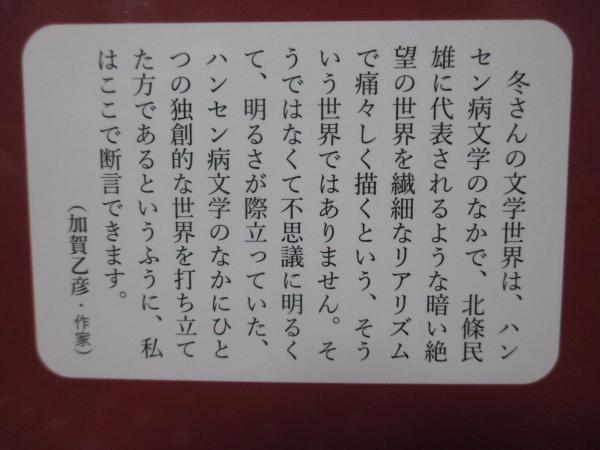 冬さんの文学世界は、ハン
セン病文学のなかで、北條民
雄に代表されるような暗い絶
望の世界を繊細なリアリズム
で痛々しく描くという、そう
いう世界ではありません。そ
うではなくて不思議に明るく
て、明るさが際立っていた、
ハンセン病文学のなかにひと
つの独創的な世界を打ち立て
た方であるというふうに、私
はここで断言できます。
（加賀乙彦・作家）